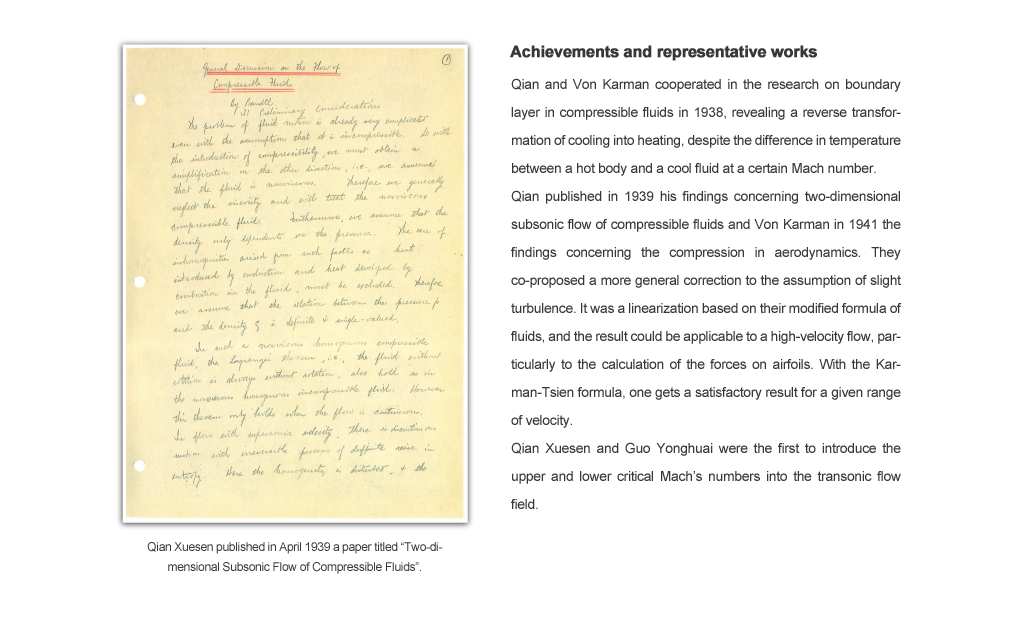 ①
General Discussion on the Flow of
Compressible Fluid
By Prandtl
(1) Preliminary Considerations
The problem of fluid motion is already very complicated
even with the assumption that it is incompressible. So with
the introduction of compressibility, we must obtain a
simplification in the other direction, i.e., we assumed
that the fluid is nonviscous. Therefore we generally
neglect the viscosity and will treat the nonviscous
compressible fluid. Furthermore, we assume that the
density only dependents on the pressure. The case of
inhomogenities arised from such factors as heat
introduced by conduction and heat developed by
combustion in the fluid, must be excluded. Therefore
we assume that the relation between the pressure p
and the density ρ is definite & single-valued.
In such a nonviscous homogenous compressible
fluid, the Lagrange's theorem, i.e., the fluid without
rotation is always without rotation, also hold as in
the nonviscous homogenous incompressible fluid. However
this theorem only holds when the flow is continuous.
In flow with supersonic velocity, there is discontinuous
motion with irreversible process of deffinite raise in
entropy. Here the homogeneity is disturbed, & the
Qian Xuesen published in April 1939 a paper titled “Two-di-
mensional Subsonic Flow of Compressible Fluids”.
Achievements and representative works
Qian and Von Karman cooperated in the research on boundary
layer in compressible fluids in 1938, revealing a reverse transfor-
mation of cooling into heating, despite the difference in temperature
between a hot body and a cool fluid at a certain Mach number.
Qian published in 1939 his findings concerning two-dimensional
subsonic flow of compressible fluids and Von Karman in 1941 the
findings concerning the compression in aerodynamics. They
co-proposed a more general correction to the assumption of slight
turbulence. It was a linearization based on their modified formula of
fluids, and the result could be applicable to a high-velocity flow, par-
ticularly to the calculation of the forces on airfoils. With the Kar-
man-Tsien formula, one gets a satisfactory result for a given range
of velocity.
Qian Xuesen and Guo Yonghuai were the first to introduce the
upper and lower critical Mach’s numbers into the transonic flow
field.